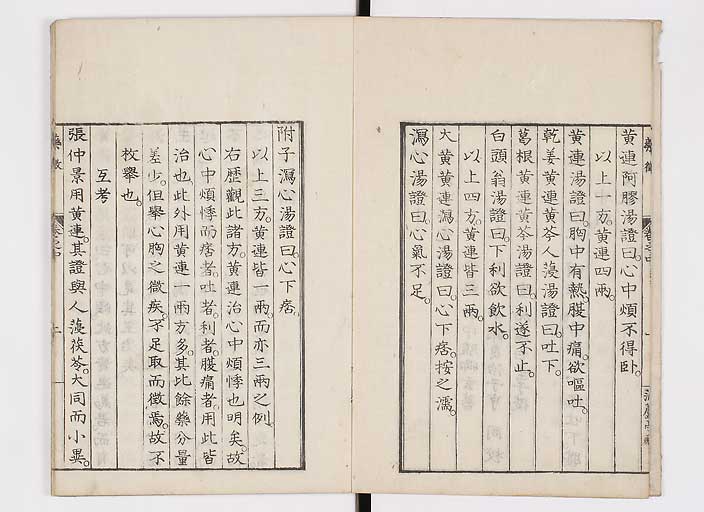 黃連阿膠湯證曰。心中煩不得臥。
以上一方。黃連四兩。
黃連湯證曰。胸中有熱。腹中痛。欲嘔吐。
乾姜黃連黃芩人葠湯證曰。吐下。
葛根黃連黃芩湯證曰。利遂不止。
白頭翁湯證曰。下利欲飲水。
以上四方。黃連皆三兩。
大黃黃連瀉心湯證曰。心下痞。按之濡。
瀉心湯證曰。心氣不足。
附子瀉心湯證曰。心下痞。
以上三方。黃連皆一兩。而亦三兩之例。
右歷觀此諸方。黃連治心中煩悸也明矣。故
心中煩悸而痞者。吐者。利者。腹痛者。用此皆
治也。此外用黃連一兩方多。其比餘藥分量
差少。但舉心胸之微疾。不足取而徵焉。故不
枚舉也。
互考
張仲景用黃連。其證與人葠茯苓。大同而小異。
藥徵
卷之中